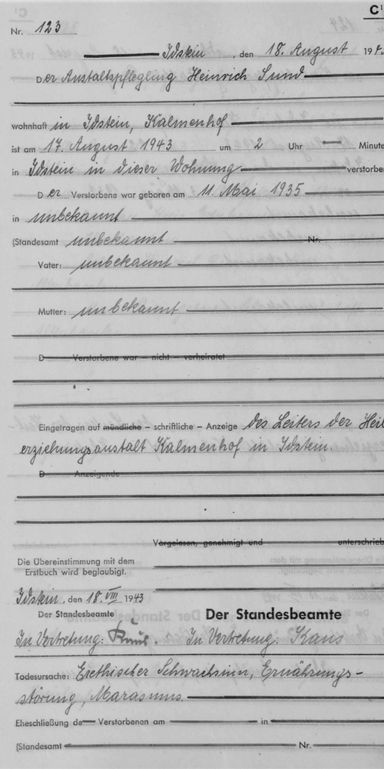 C¹
Nr. 123
Idstein, den 18. August 194
Der Anstaltspflegling Heinrich Sund
wohnhaft in Idstein, Kalmenhof
ist am 17. August 1943 um 2 Uhr — Minute
in Idstein in dieser Wohnung verstorbe
Der Verstorbene war geboren am 11. Mai 1935
in unbekannt
(Standesamt unbekannt Nr.
Vater: unbekannt
Mutter: unbekannt
D Verstorbene war – nicht – verheiratet
Eingetragen auf mündliche – schriftliche – Anzeige des Leiters der Heil
erziehungsanstalt Kalmenhof in Idstein.
D Anzeigende
Vorgelesen, genehmigt und unterschrieb
Die Übereinstimmung mit dem
Erstbuch wird beglaubigt.
Idstein, den 18. VIII 1943
Der Standesbeamte Der Standesbeamte
In Vertretung: In Vertretung:
Todesursache: Erethischer Schwachsinn, Ernährungs-
störung, Marasmus.
Eheschließung de Verstorbenen am in
(Standesamt Nr.